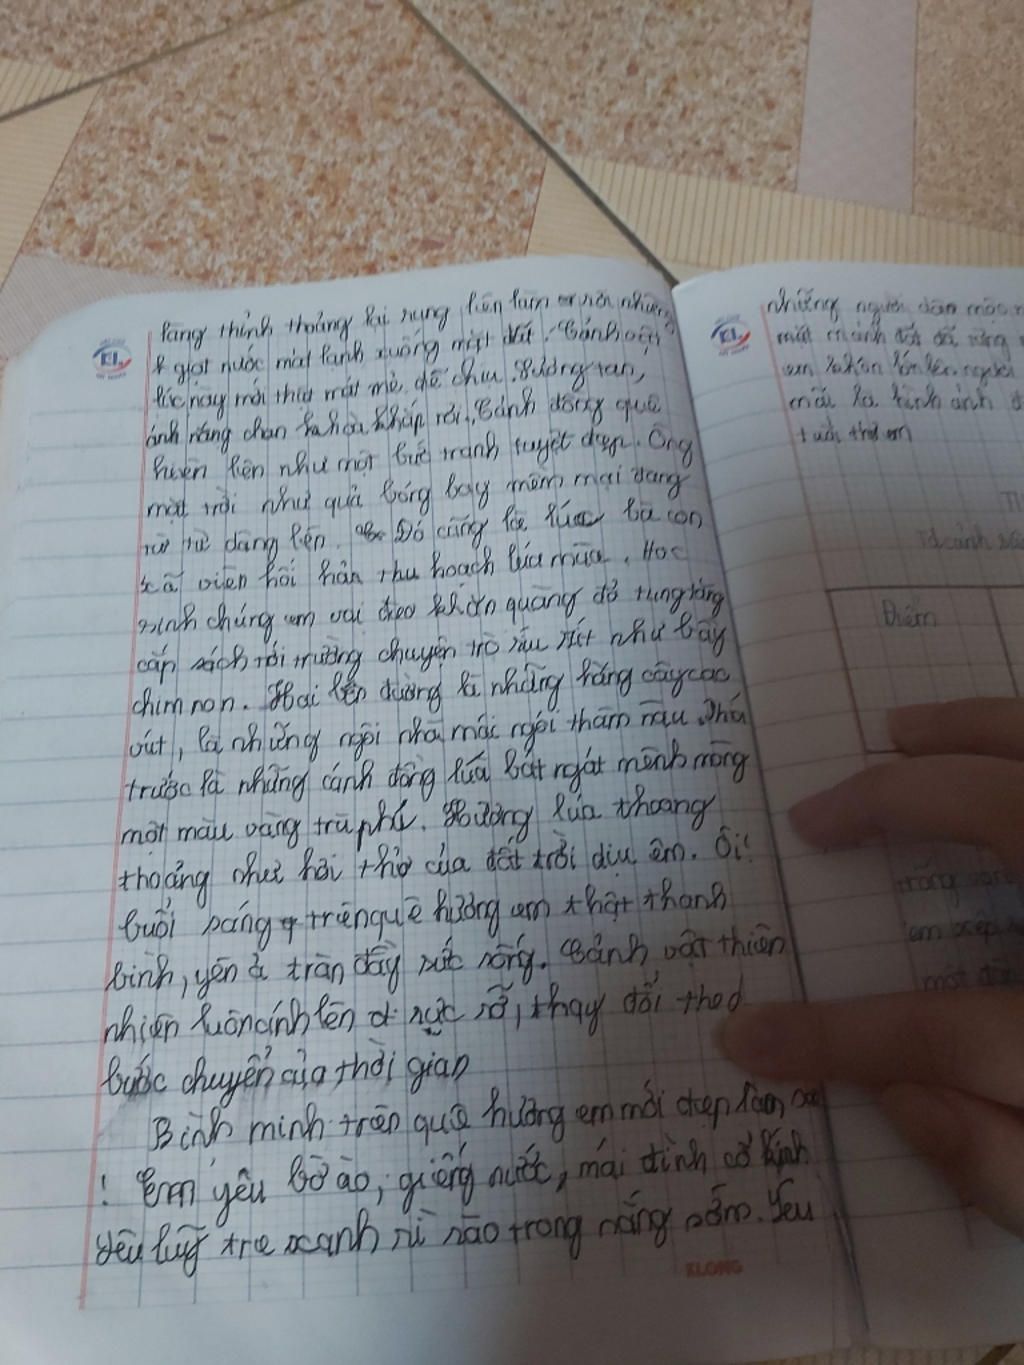 làng thỉnh thoảng lại rung lên làm rơi những
giọt nước mát lạnh xuống mặt đất. Cảnh vật
lúc này mới thật mát mẻ, dễ chịu. Sương tan,
ánh nắng chan hoà khắp nơi. Cánh đồng quê
hiện lên như một bức tranh tuyệt đẹp. Ông
mặt trời như quả bóng bay mềm mại đang
từ từ dâng lên. Đó cũng là lúc bà con
xã viên hối hả thu hoạch lúa mùa. Học
sinh chúng em vai đeo khăn quàng đỏ tung tăng
cắp sách tới trường chuyện trò ríu rít như bầy
chim non. Hai bên đường là những hàng cây cao
vút, là những ngôi nhà mái ngói thẫm màu. Phía
trước là những cánh đồng lúa bát ngát mênh mông
một màu vàng trù phú. Hương lúa thoang
thoảng như hơi thở của đất trời dịu êm. Ôi!
buổi sáng trên quê hương em thật thanh
bình, yên ả tràn đầy sức sống. Cảnh vật thiên
nhiên luôn ánh lên rực rỡ, thay đổi theo
bước chuyển của thời gian
Bình minh trên quê hương em mới đẹp làm sao
! Em yêu bờ ao, giếng nước, mái đình cổ kính
yêu luỹ tre xanh rì rào trong nắng sớm. Yêu
KLONG
những người dân mộc
mặt mảnh đất đã
em khôn lớn lên người
mãi là hình ảnh
tuổi thơ em
Tả cảnh
Điểm
trong
em
một